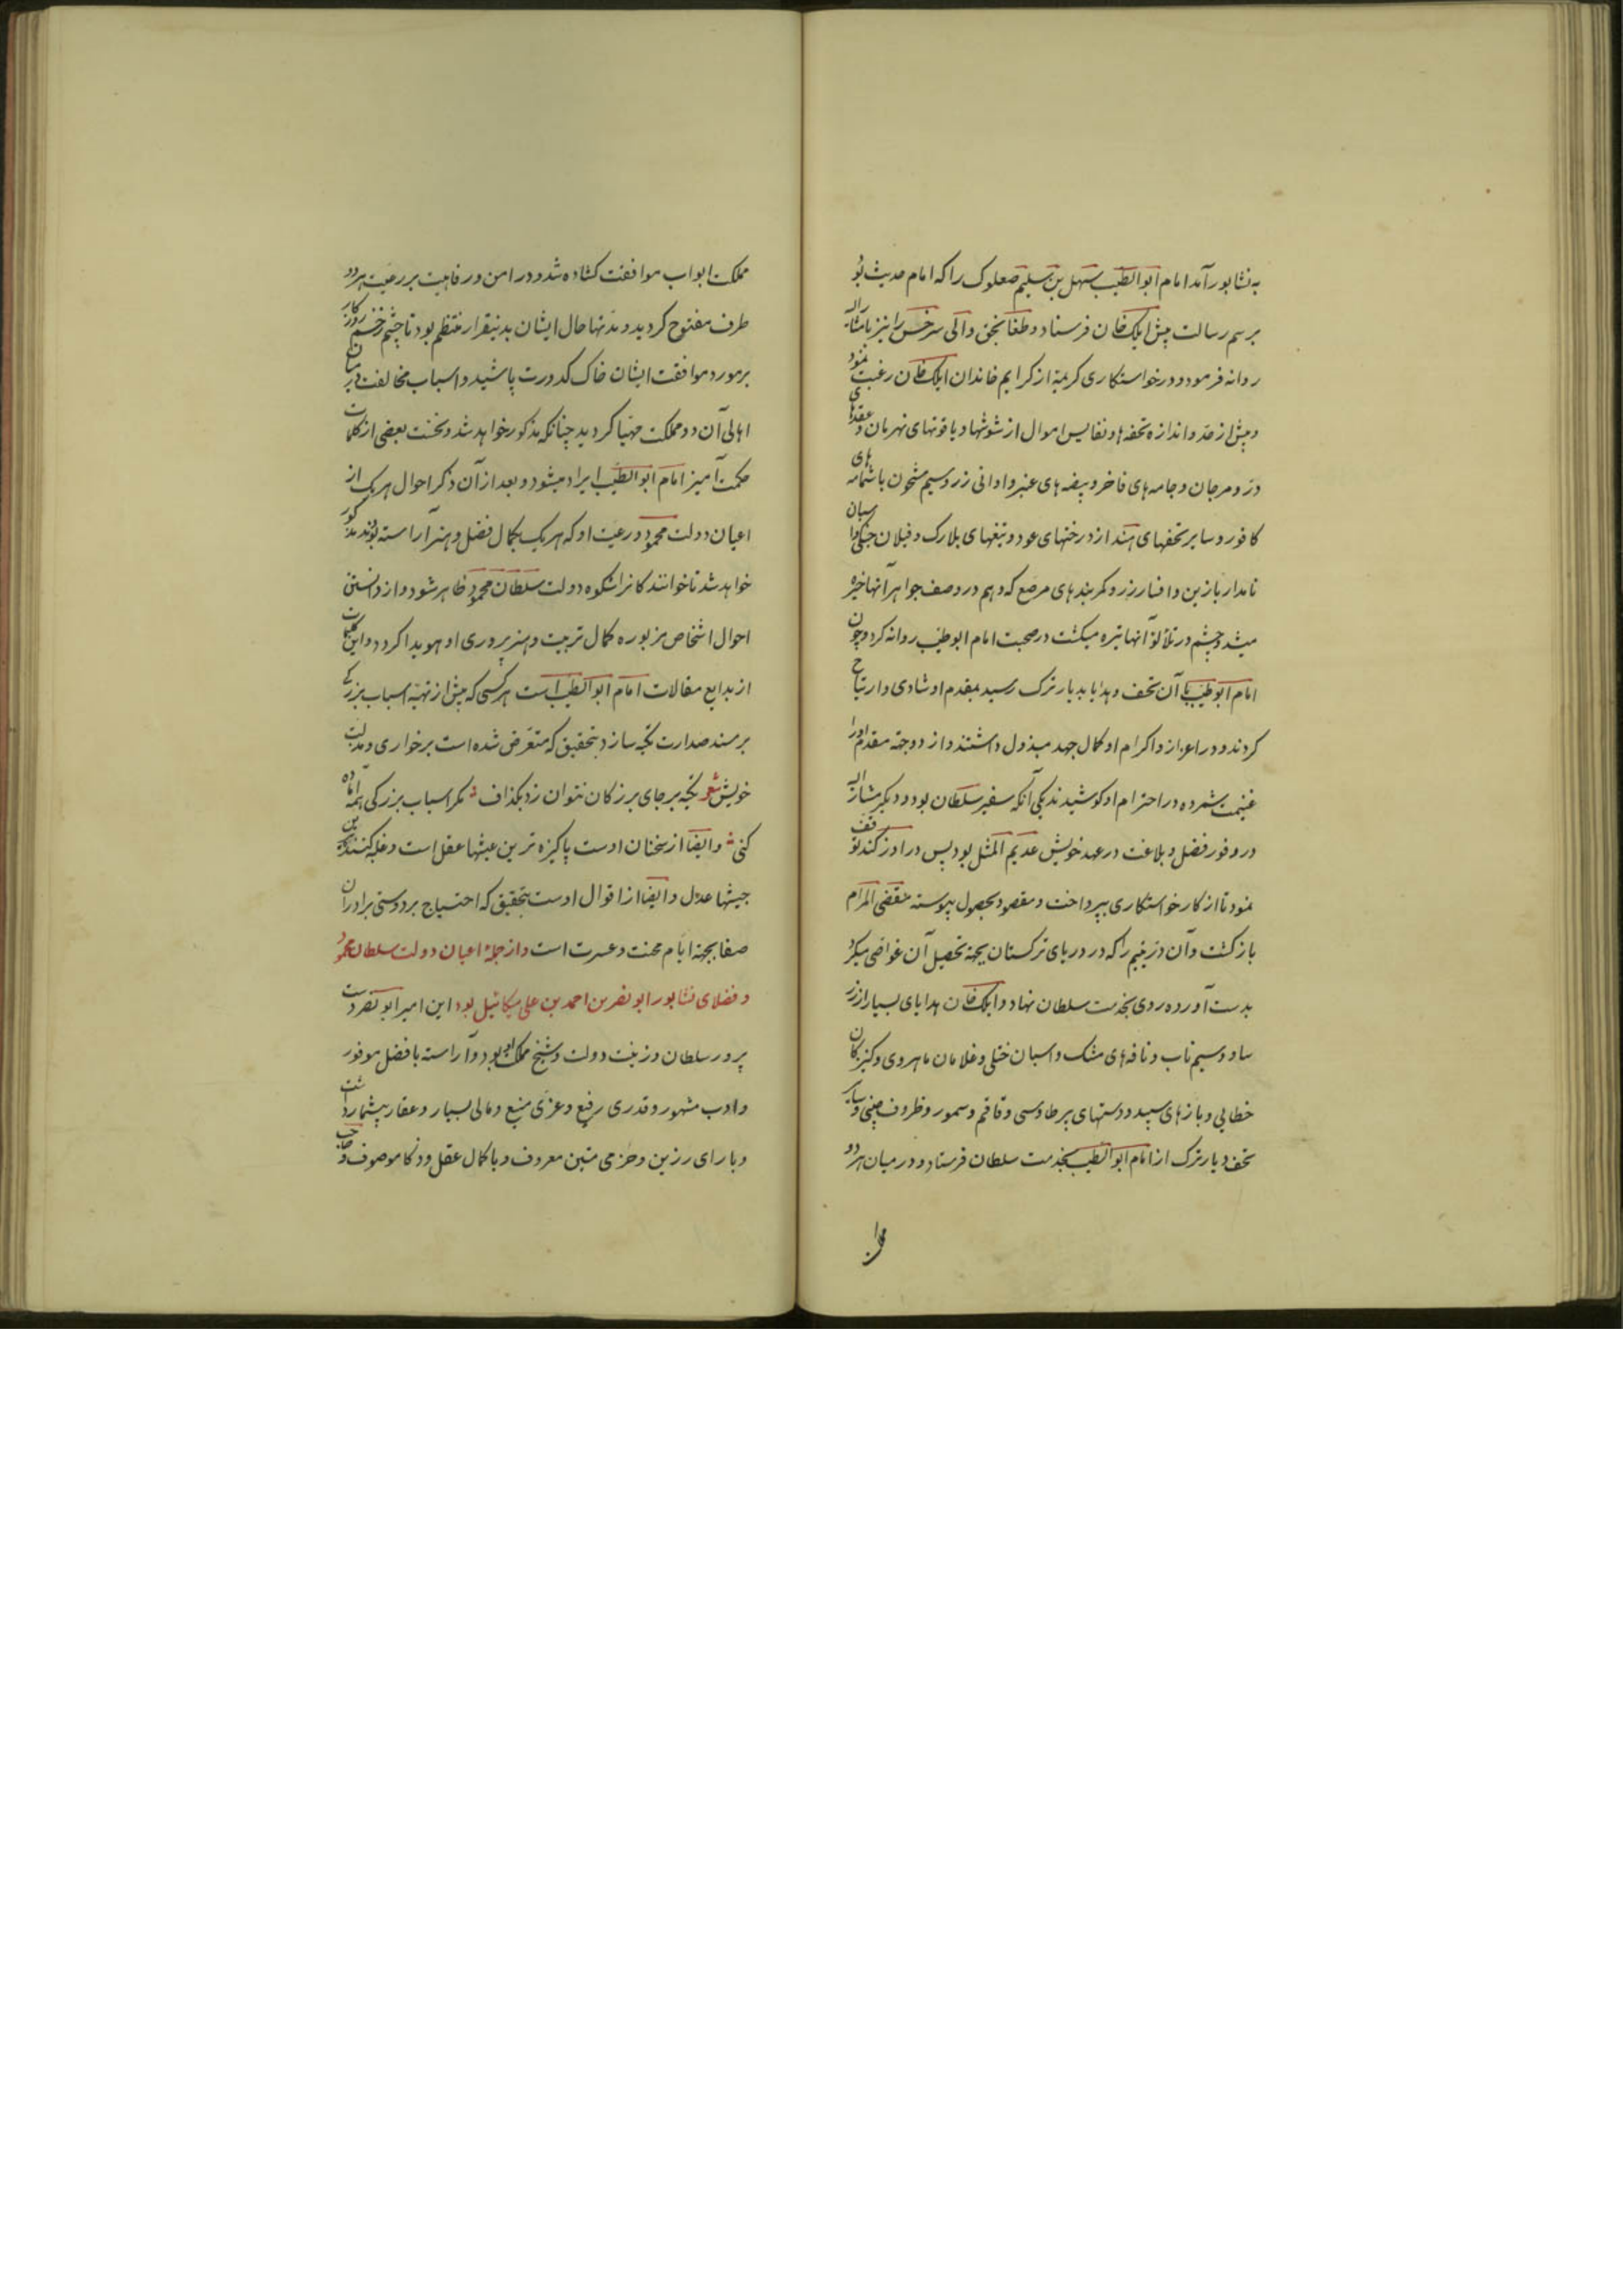 به نشابور آمد امام ابو الطیب سهل بن سلیم صعلوک را که امام حدیث بود
برسم رسالت پیش ایلک خان فرستاد و طغانجق والی سرخس را نیز با مشار الیه
روانه فرمود و در خواستکاری کریمهٔ از کرایم خاندان ایلک خان رغبت نمود
و بیش از حد و اندازه تحفه ها و نفایس اموال از شوشها و یاقوتهای نهرمان و عقدهای
در و مرجان و جامه های فاخر و بیضه های عنبر و اوانی زر و سیم مشحون با شمامه های
کافور و سایر تحفهای هند از درختهای عود و تیغهای بلارک و فیلان جنکی و اسبان
نامدار با زین و افسار زر و کمربندهای مرصع که وهم در وصف جواهر آنها خیره
میشد و چشم در تلألؤ آنها تیره میکشت در صحبت امام ابو طیب روانه کرد و چون
امام ابو طیب با آن تحف و هدایا بدیار ترک رسید بمقدم او شادی و ارتیاح
کردند و در اعزاز و اکرام او کمال جهد مبذول داشتند و از دو جهة مقدم او را
غنیمت شمرده در احترام او کوشیدند یکی آنکه سفیر سلطان بود و دیکر مشار الیه
در وفور فضل و بلاغت در عهد خویش عدیم المثل بود پس در اوزکند توقف
نمود تا از کار خواستکاری بپرداخت و مقصود بحصول پیوسته مقضی المرام
بازکشت و آن در یتیم را که در دریای ترکستان بجهة تحصیل آن غواصی میکرد
بدست آورده روی بخدمت سلطان نهاد و ایلک خان هدایای بسیار از زر
ساو و سیم ناب و نافه های مشک و اسبان ختلی و غلامان ماهروی و کنیزکان
خطایی و بازهای سپید و دستهای پر طاوسی و قاقم و سمور و ظروف چینی و سایر
تحف دیار ترک از امام ابو الطیب بخدمت سلطان فرستاد و در میان هر دو
مملکت ابواب موافقت کشاده شد و در امن و رفاهیت بر رعیت هر دو
طرف مفتوح کردید و مدتها حال ایشان بدینقرار منتظم بود تا چشم زخم روزکار
بر مورد موافقت ایشان خاک کدورت پاشید و اسباب مخالفت در میان
اهالی آن دو مملکت مهیا کردید چنانکه مذکور خواهد شد و نخست بعضی از کلمات
حکمت آمیز امام ابو الطیب ایراد میشود و بعد از آن ذکر احوال هر یک از
اعیان دولت محمود و رعیت او که هر یک بکمال فضل و هنر آراسته بودند مذکور
خواهد شد تا خوانندکانرا شکوه دولت سلطان محمود ظاهر شود و از دانستن
احوال اشخاص مزبوره کمال تربیت و هنرپروری او هویدا کردد و این کلمات
از بدایع مقالات امام ابو الطیب است هر کسی که پیش از تهیهٔ اسباب بزرکی
بر مسند صدارت تکیه سازد بتحقیق که متعرض شده است برخواری و مذلت
خویش شعر تکیه بر جای بزرکان نتوان زد بکذاف مکر اسباب بزرکی همه آماده
کنی وایضا از سخنان اوست پاکیزه ترین عیشها عقل است و غلبه کننده ترین
جیشها عدل وایضا از اقوال اوست بتحقیق که احتیاج بر دوستی برادران
صفا بجهة ایام محنت و عسرت است و از جملهٔ اعیان دولت سلطان محمود
و فضلای نشابور ابو نصر بن احمد بن علی میکائیل بود این امیر ابو نصر دست
پرور سلطان و زینت دولت و شیخ مملکت او بود و آراسته با فضل موفور
و ادب مشهور و قدری رفیع و عزی منیع و مالی بسیار و عقار بیشمار داشت
و با رای رزین و حزمی متین معروف و با کمال عقل و ذکا موصوف و صاحب